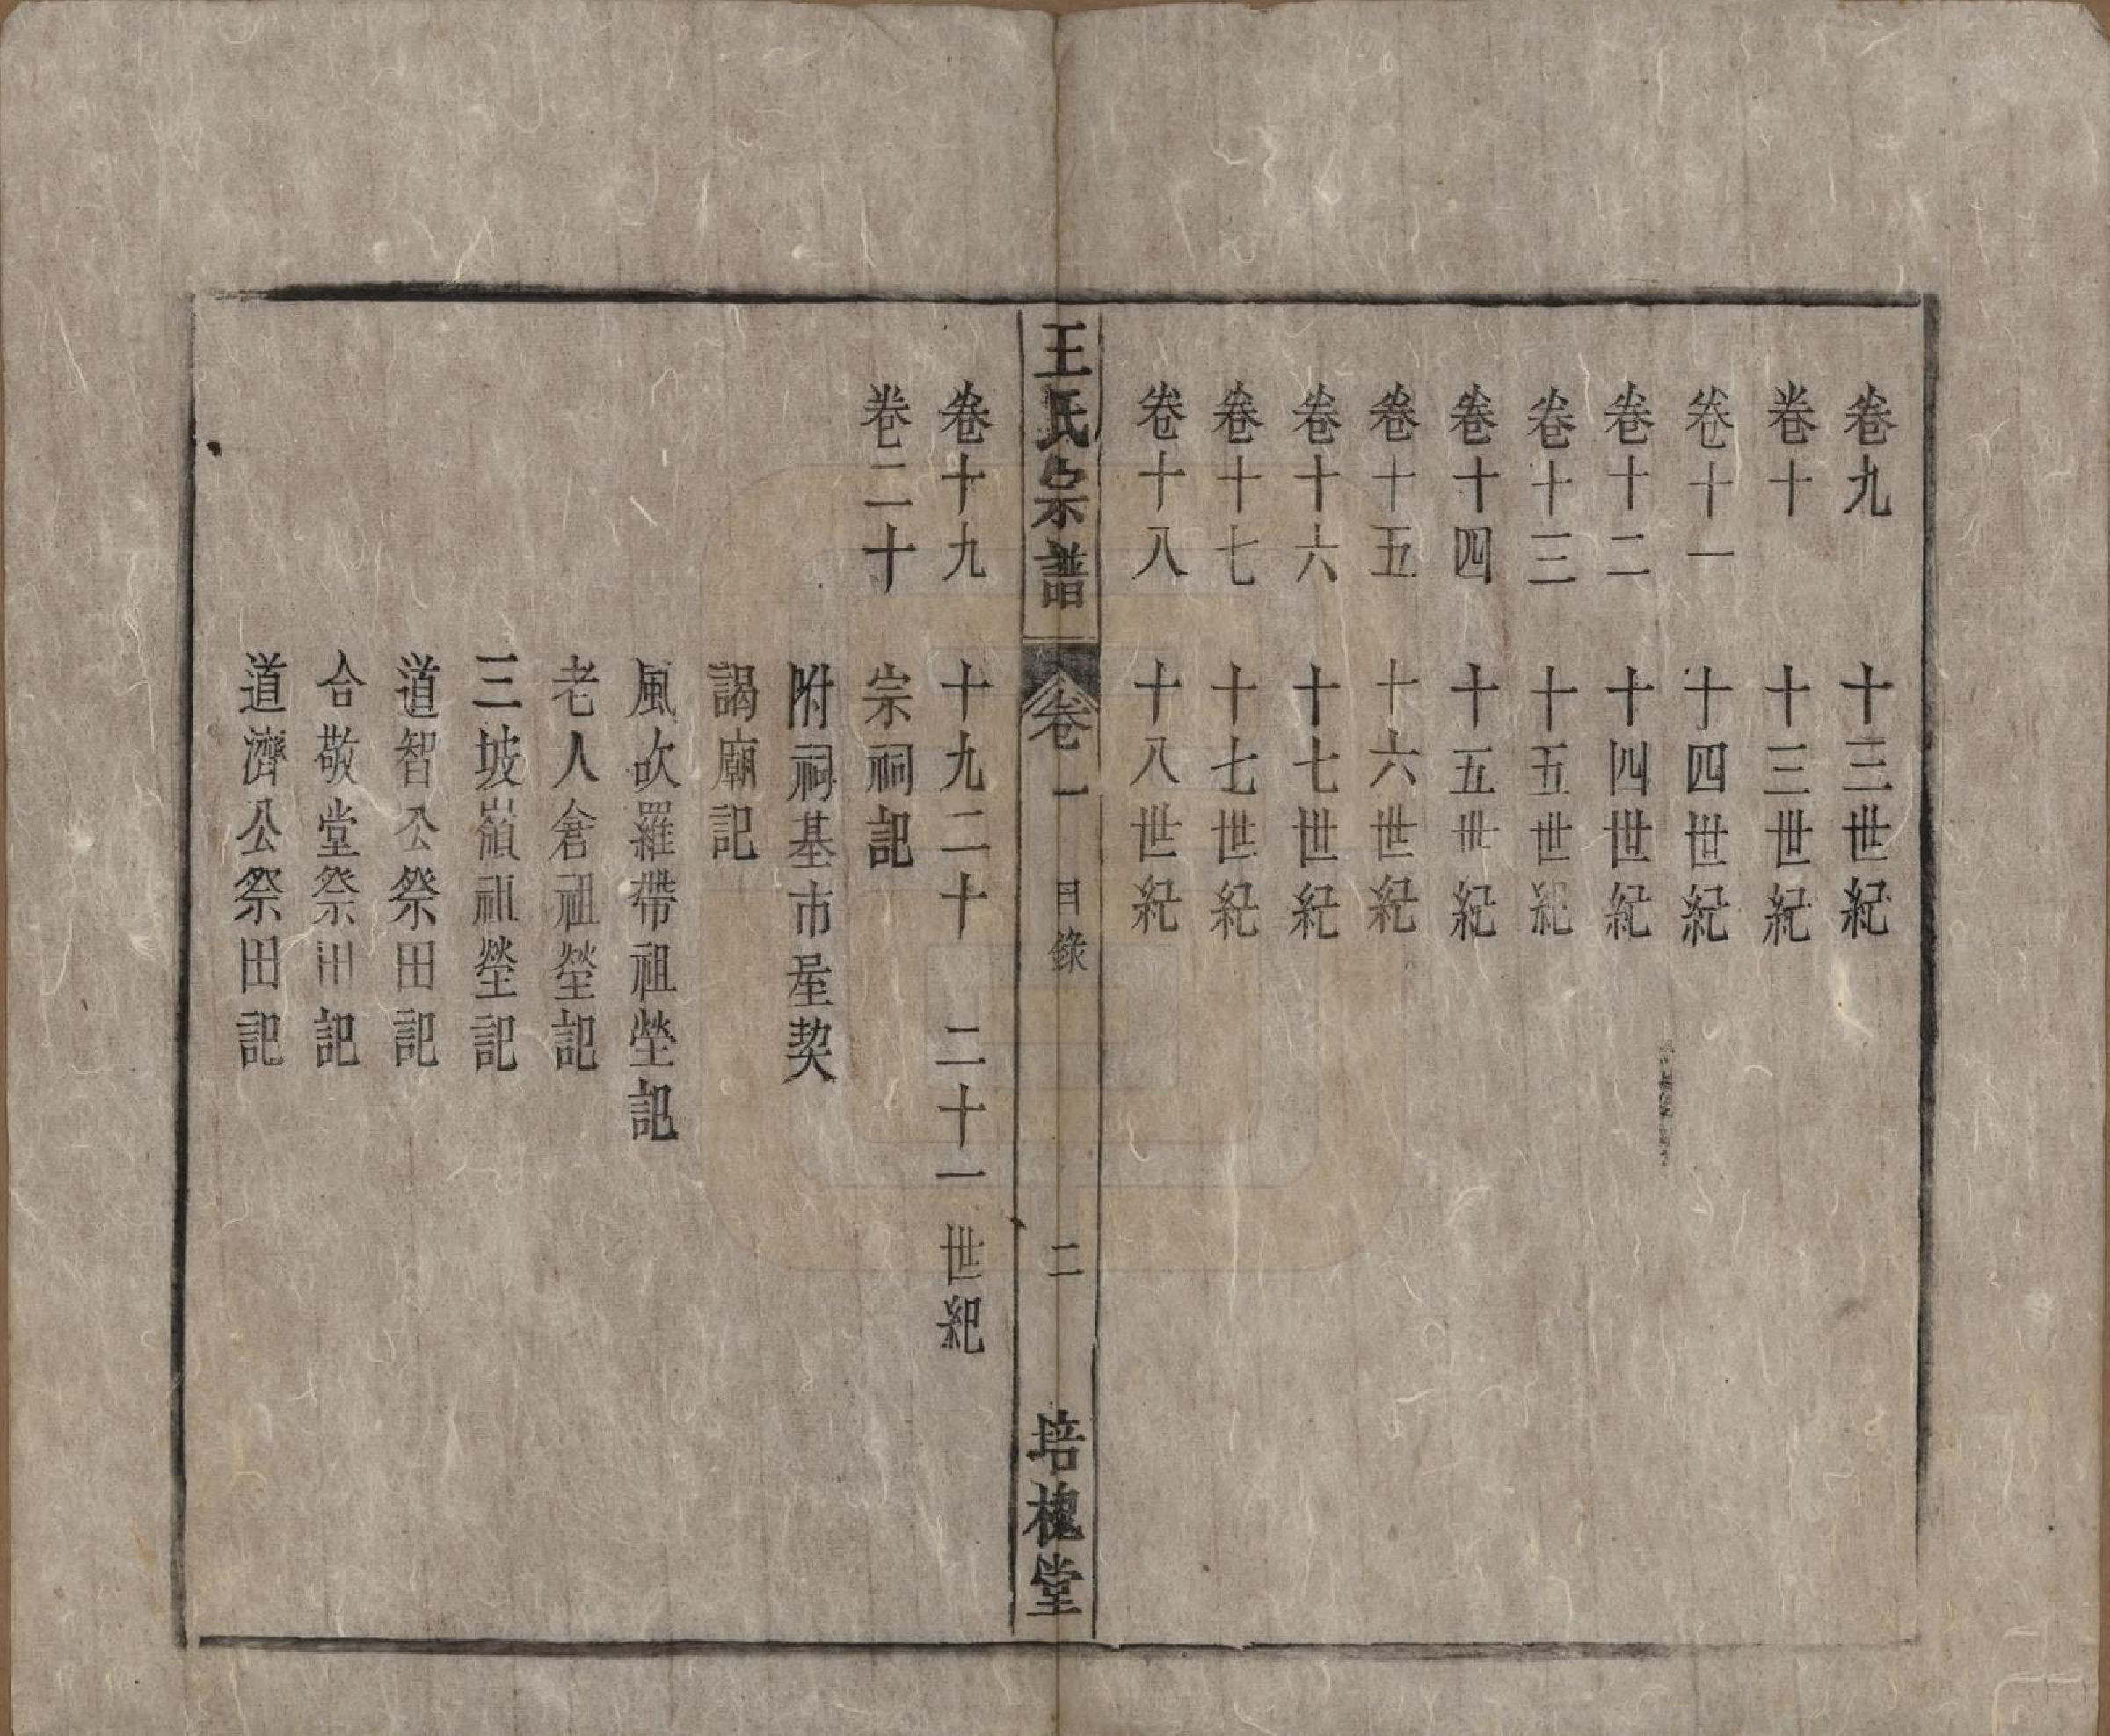 卷九 十三世紀
卷十 十三世紀
卷十一 十四世紀
卷十二 十四世紀
卷十三 十五世紀
卷十四 十五世紀
卷十五 十六世紀
卷十六 十七世紀
卷十七 十七世紀
卷十八 十八世紀
王氏宗譜 卷一 目錄 二 培槐堂
卷十九 十九二十 二十一世紀
卷二十 宗祠記
附祠基市屋契
謁廟記
風吹羅帶祖塋記
老人倉祖塋記
三坡嶺祖塋記
道智公祭田記
合敬堂祭田記
道濟公祭田記